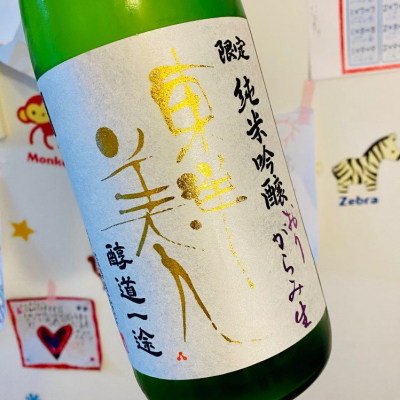 限定
純米吟醸
おりがらみ生
東洋
美人
醇道一途
Monk
Zebra